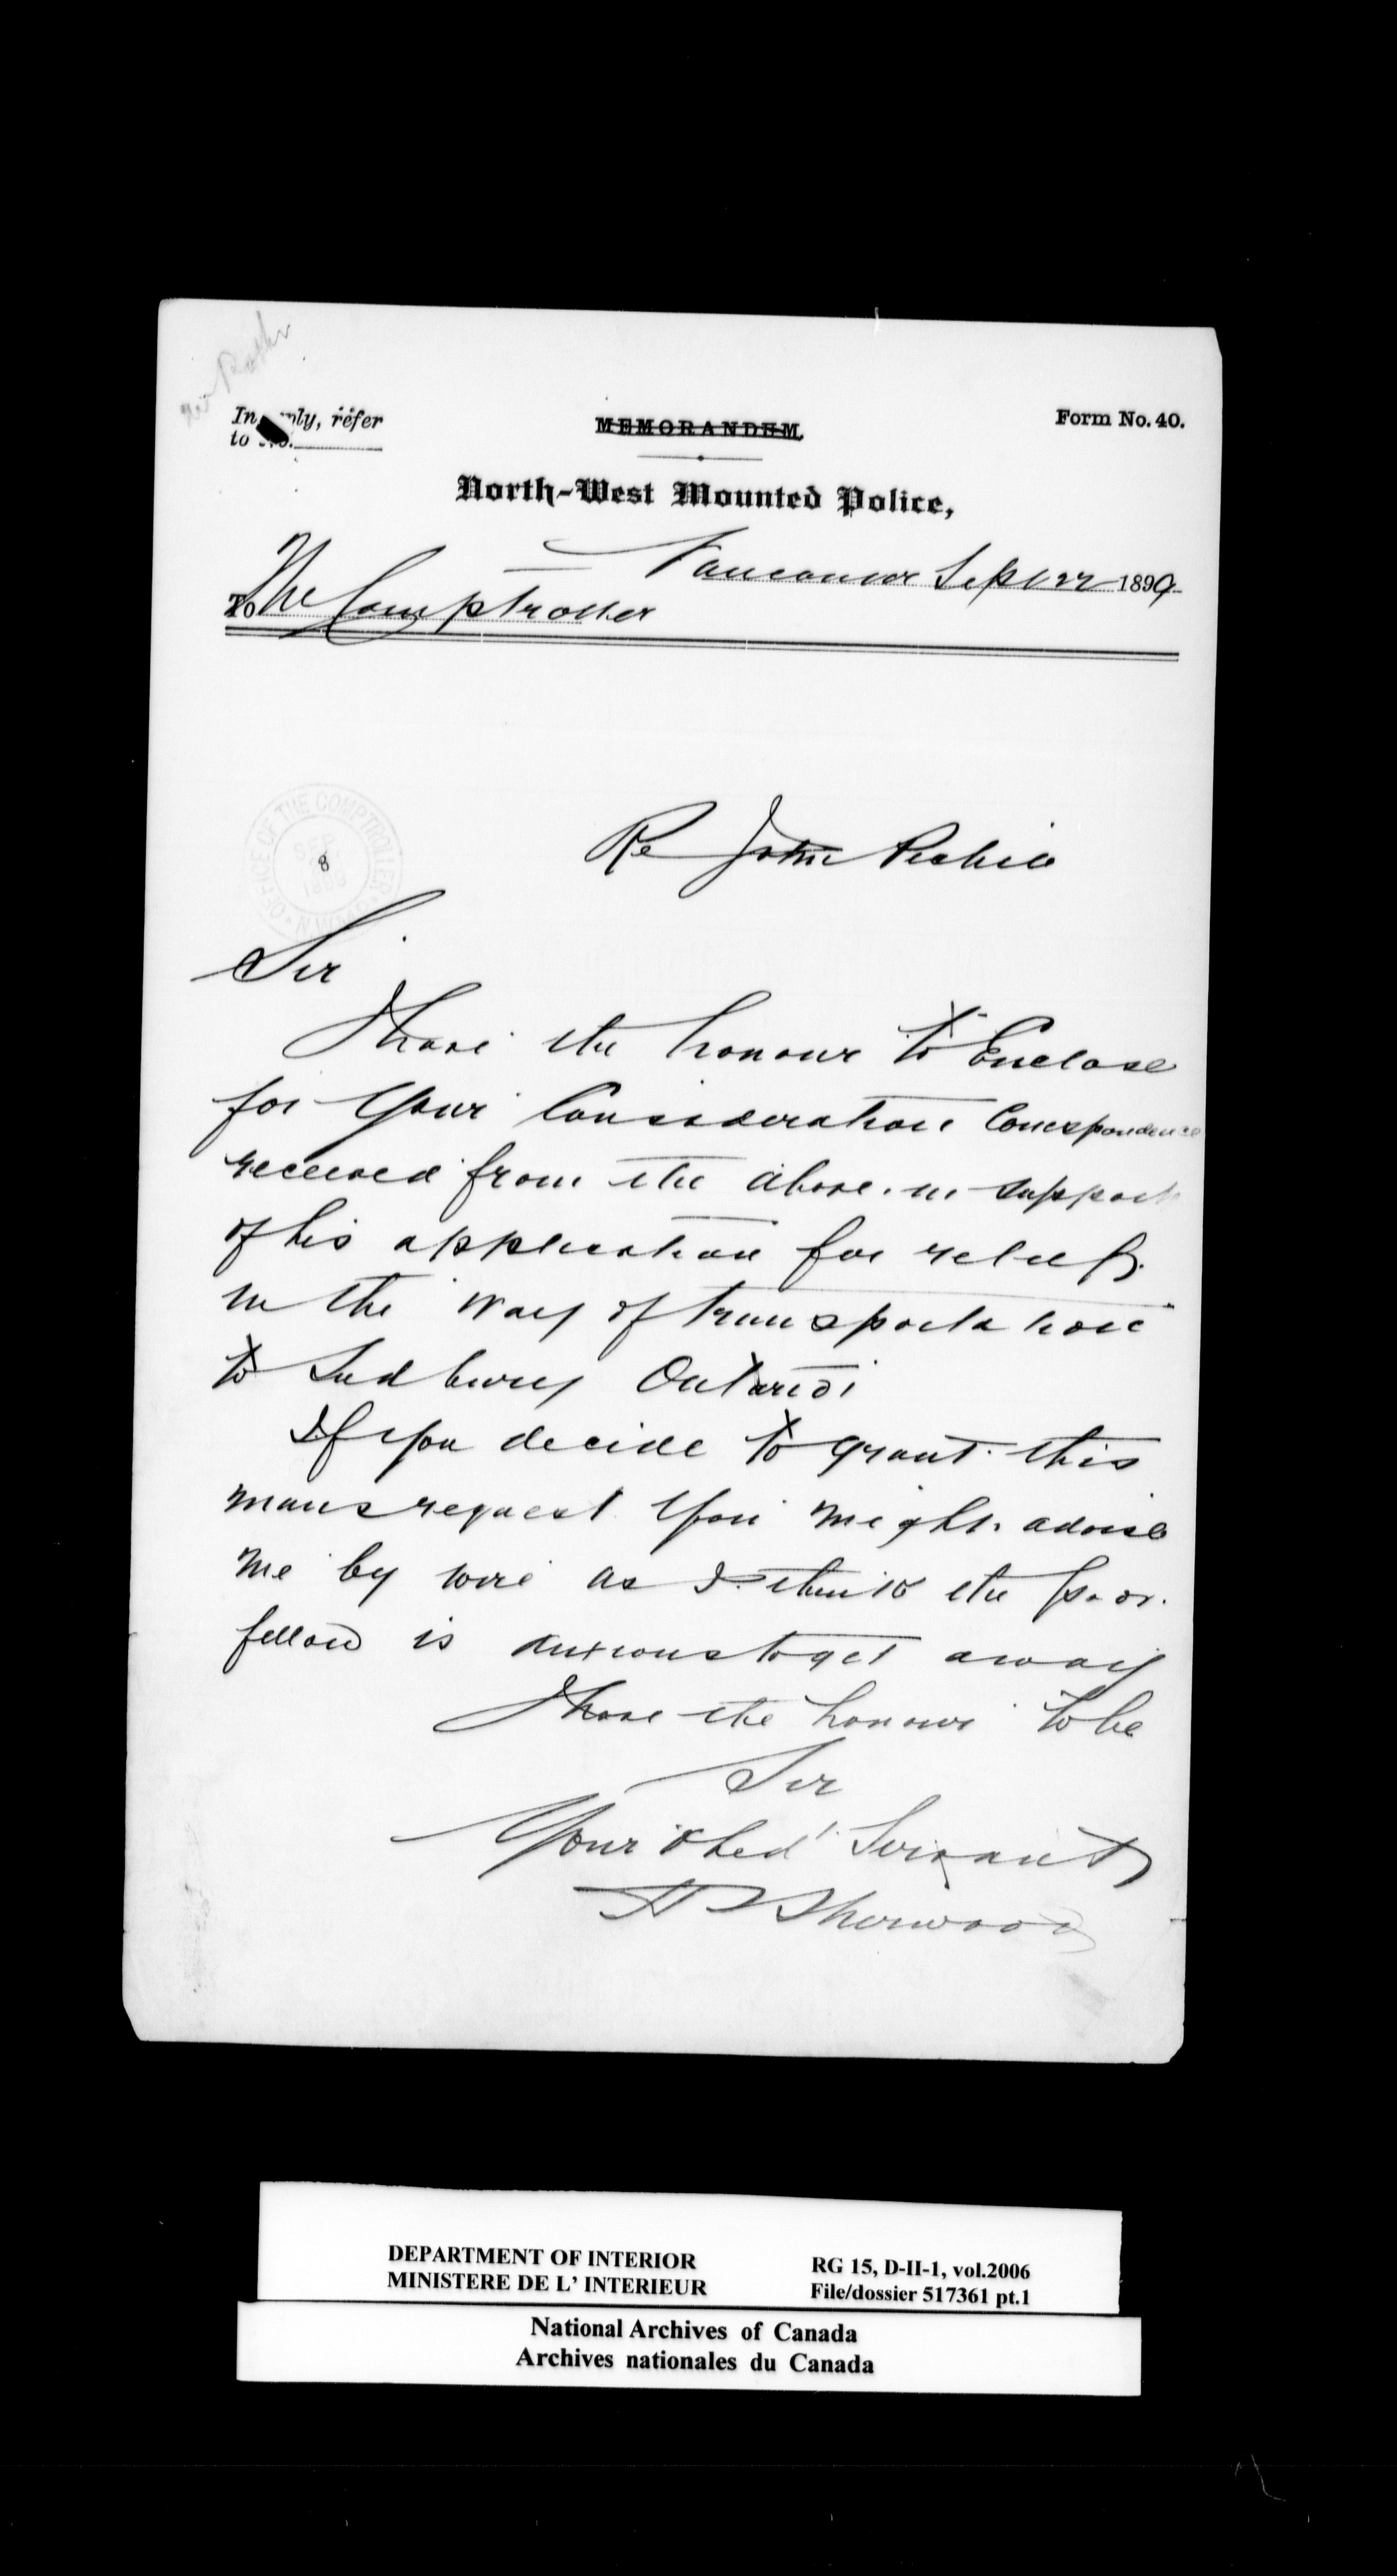 In reply, refer
to No.
MEMORANDUM.
Form No. 40.
North-West Mounted Police,
Vancouver Sept 22 1899
To The Comptroller
OFFICE OF THE COMPTROLLER
8
Re John
Sir
I have the honour to Enclose
for Your Consideration Correspondence
received from the above in support
of his application for relief
in the way of transportation
to Sudbury Ontario
If you decide to grant this
mans request You might advise
me by wire as I think the poor
fellow is anxious to get away
I have the honour to be
Sir
Your obed't Servant
Sherwood
DEPARTMENT OF INTERIOR
MINISTERE DE L' INTERIEUR
RG 15, D-II-1, vol.2006
File/dossier 517361 pt.1
National Archives of Canada
Archives nationales du Canada